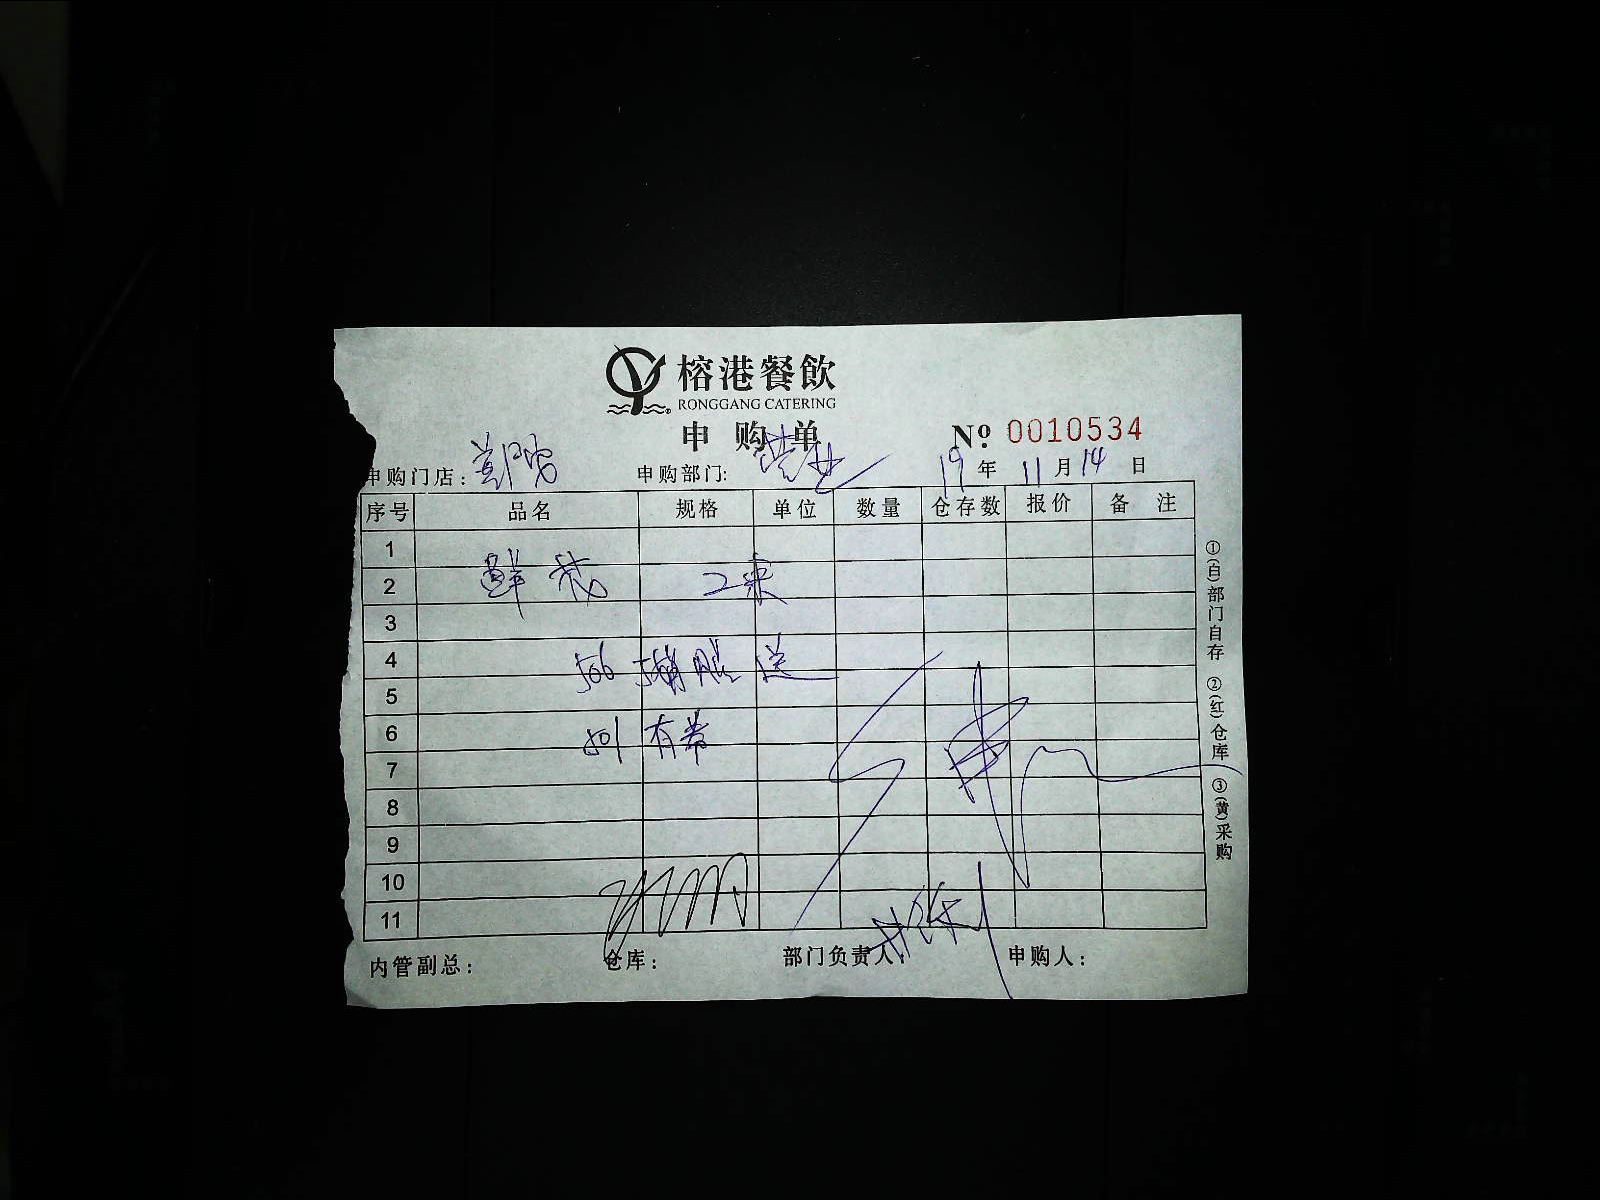 榕港餐飲
RONGGANG CATERING
申购单
№ 0010534
申购门店:
申购部门: 营业
19年 11月 14日
序号 品名 规格 单位 数量 仓存数 报价 备注
1
2 鲜花 二束
3
4 506
5
6 501 有常
7
8
9
10
11
内管副总:
仓库:
部门负责人:
申购人:
①(白)部门自存 ②(红)仓库 ③(黄)采购